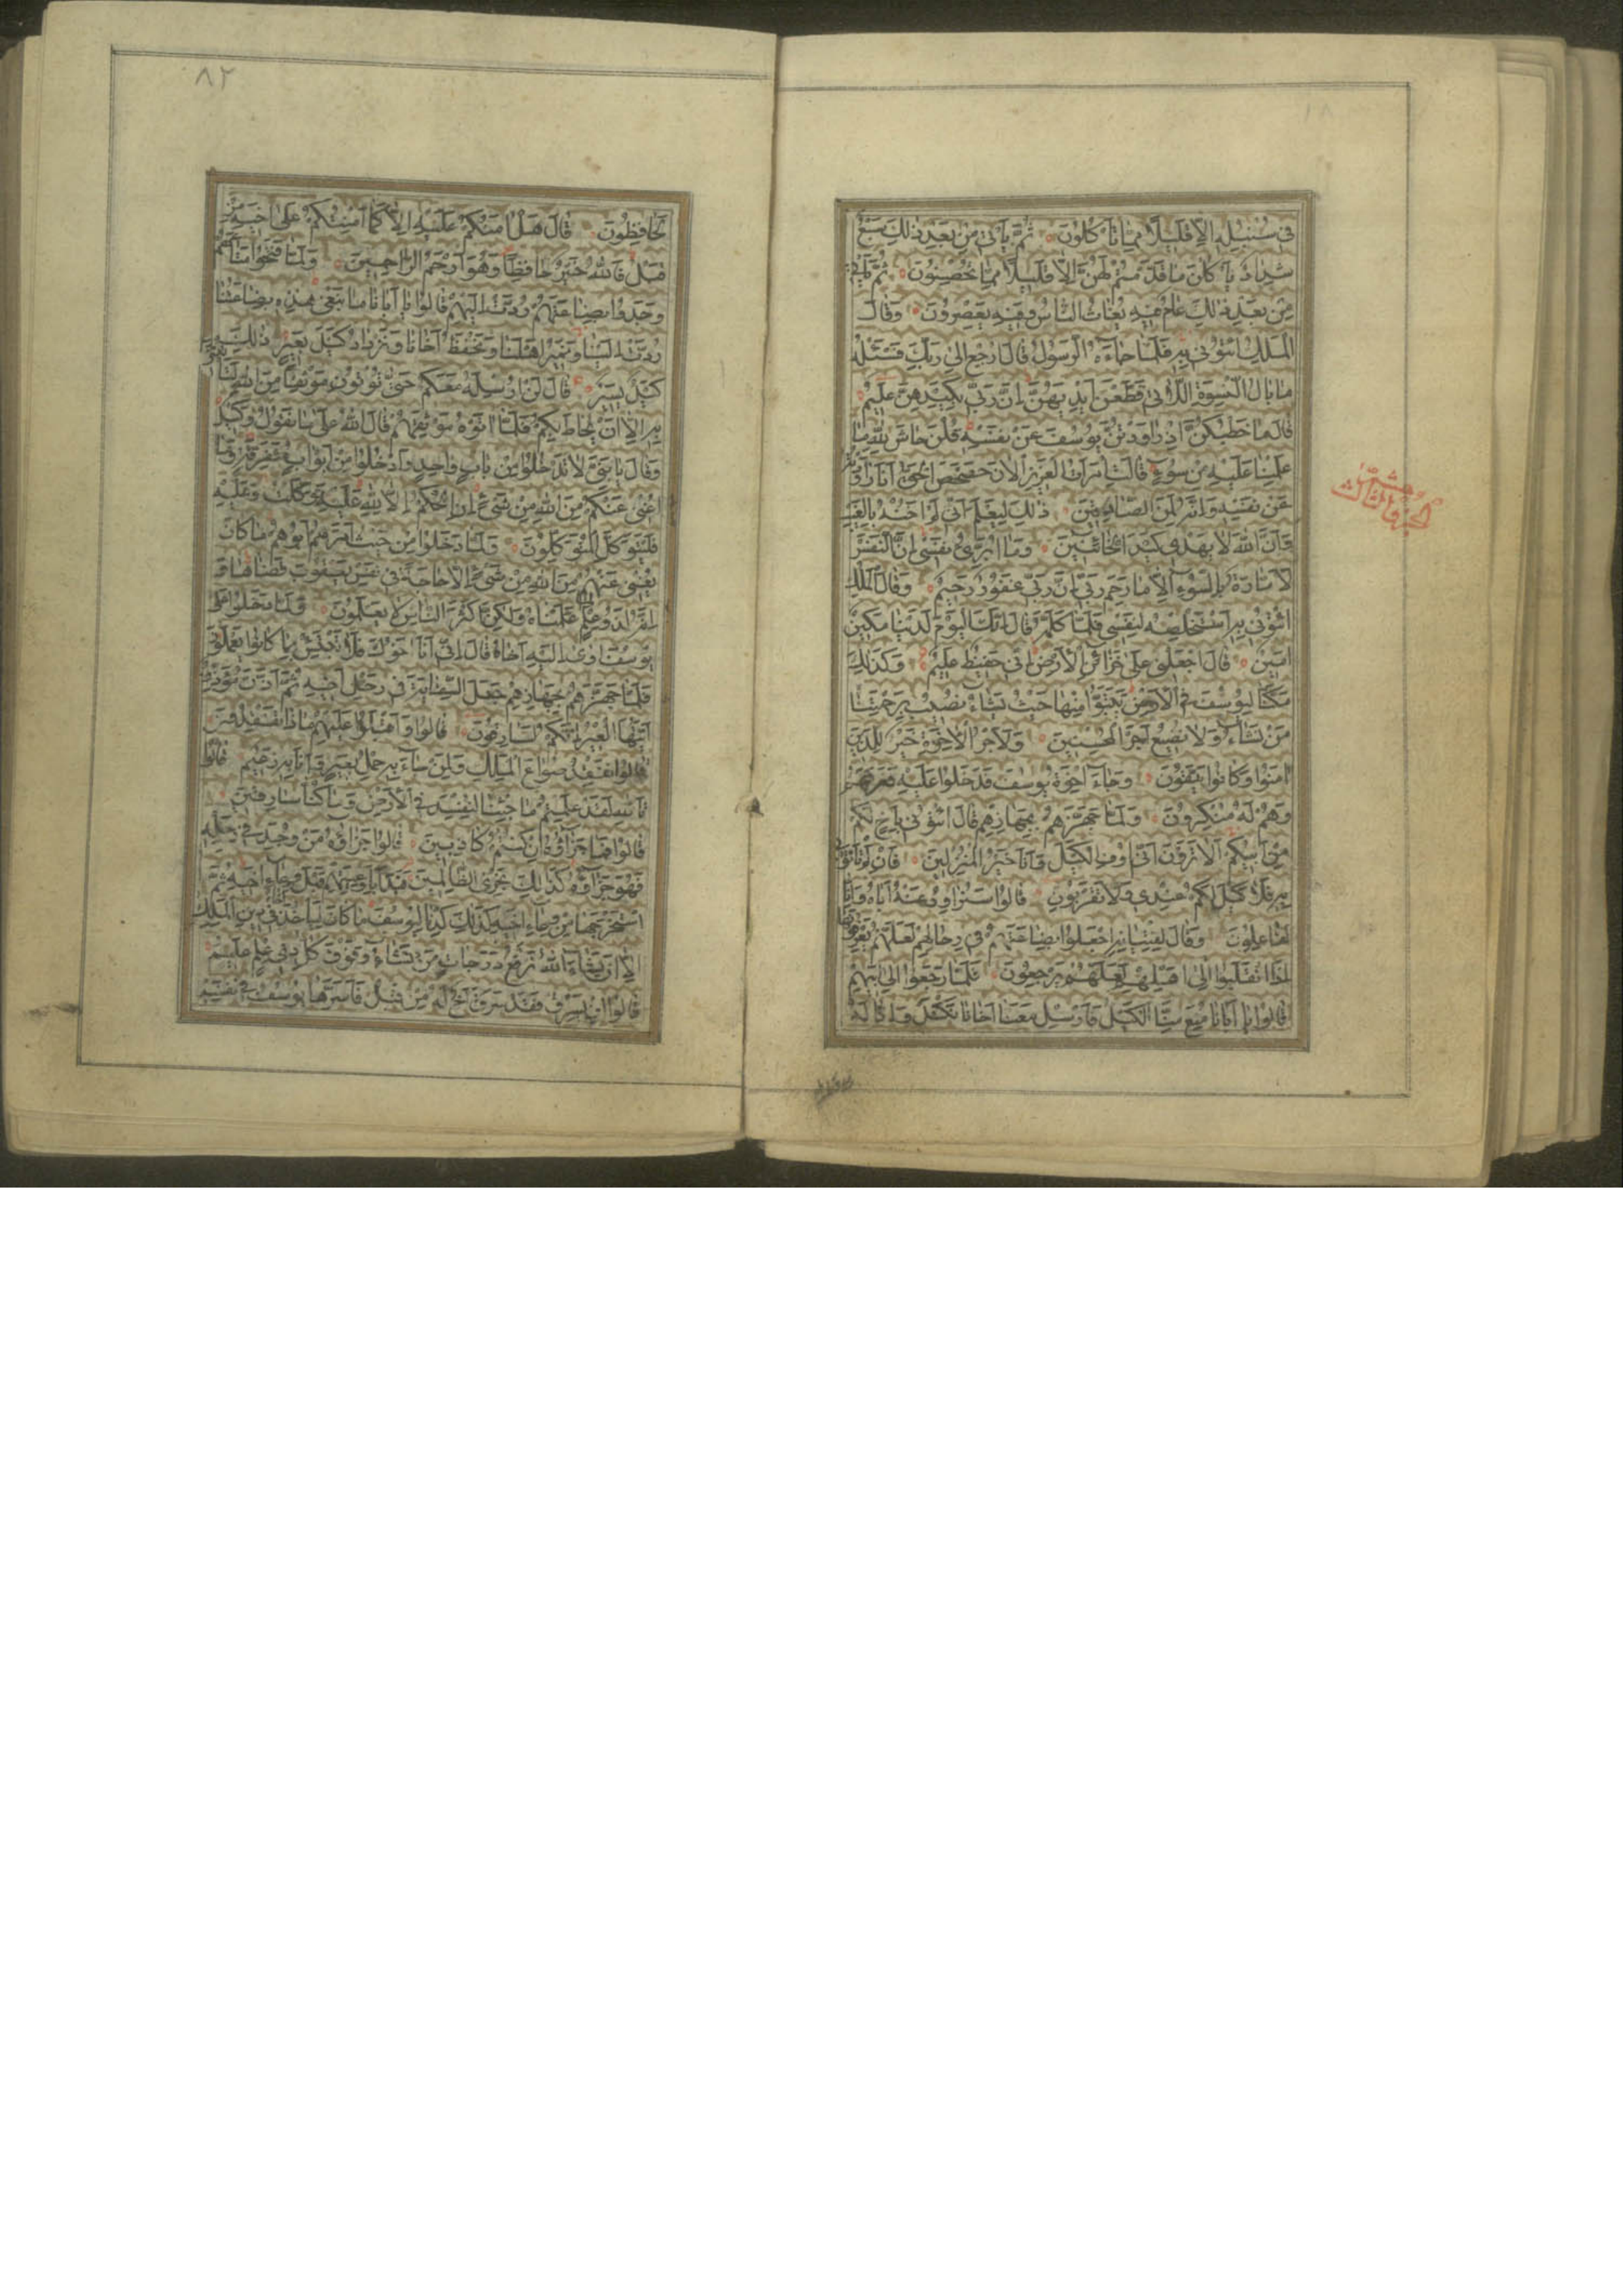 في سنبله الا قليلا مما تاكلون ثم ياتي من بعد ذلك سبع
شداد ياكلن ما قدمتم لهن الا قليلا مما تحصنون ثم ياتي
من بعد ذلك عام فيه يغاث الناس وفيه يعصرون وقال
الملك ائتوني به فلما جاءه الرسول قال ارجع الى ربك فسئله
ما بال النسوة اللاتي قطعن ايديهن ان ربي بكيدهن عليم
قال ما خطبكن اذ راودتن يوسف عن نفسه قلن حاش لله ما
علمنا عليه من سوء قالت امرات العزيز الان حصحص الحق انا راودته
عن نفسه وانه لمن الصادقين ذلك ليعلم اني لم اخنه بالغيب
وان الله لا يهدي كيد الخائنين وما ابرئ نفسي ان النفس
لامارة بالسوء الا ما رحم ربي ان ربي غفور رحيم وقال الملك
ائتوني به استخلصه لنفسي فلما كلمه قال انك اليوم لدينا مكين
امين قال اجعلني على خزائن الارض اني حفيظ عليم وكذلك
مكنا ليوسف في الارض يتبوا منها حيث يشاء نصيب برحمتنا
من نشاء ولا نضيع اجر المحسنين ولاجر الاخرة خير للذين
امنوا وكانوا يتقون وجاء اخوة يوسف فدخلوا عليه فعرفهم
وهم له منكرون ولما جهزهم بجهازهم قال ائتوني باخ لكم
من ابيكم الا ترون اني اوفي الكيل وانا خير المنزلين فان لم تاتوني
به فلا كيل لكم عندي ولا تقربون قالوا سنراود عنه اباه وانا
لفاعلون وقال لفتيانه اجعلوا بضاعتهم في رحالهم لعلهم يعرفونها
اذا انقلبوا الى اهلهم لعلهم يرجعون فلما رجعوا الى ابيهم
قالوا يا ابانا منع منا الكيل فارسل معنا اخانا نكتل وانا له
الجزو الثالث عشر
٨٢
لحافظون قال هل امنكم عليه الا كما امنتكم على اخيه من
قبل فالله خير حافظا وهو ارحم الراحمين ولما فتحوا متاعهم
وجدوا بضاعتهم ردت اليهم قالوا يا ابانا ما نبغي هذه بضاعتنا
ردت الينا ونمير اهلنا ونحفظ اخانا ونزداد كيل بعير ذلك
كيل يسير قال لن ارسله معكم حتى تؤتون موثقا من الله لتاتنني
به الا ان يحاط بكم فلما اتوه موثقهم قال الله على ما نقول وكيل
وقال يا بني لا تدخلوا من باب واحد وادخلوا من ابواب متفرقة وما
اغني عنكم من الله من شيء ان الحكم الا لله عليه توكلت وعليه
فليتوكل المتوكلون ولما دخلوا من حيث امرهم ابوهم ما كان
يغني عنهم من الله من شيء الا حاجة في نفس يعقوب قضاها و
انه لذو علم لما علمناه ولكن اكثر الناس لا يعلمون ولما دخلوا على
يوسف اوى اليه اخاه قال اني انا اخوك فلا تبتئس بما كانوا يعملون
فلما جهزهم بجهازهم جعل السقاية في رحل اخيه ثم اذن مؤذن
ايتها العير انكم لسارقون قالوا واقبلوا عليهم ماذا تفقدون
قالوا نفقد صواع الملك ولمن جاء به حمل بعير وانا به زعيم قالوا
تالله لقد علمتم ما جئنا لنفسد في الارض وما كنا سارقين
قالوا فما جزاؤه ان كنتم كاذبين قالوا جزاؤه من وجد في رحله
فهو جزاؤه كذلك نجزي الظالمين فبدا باوعيتهم قبل وعاء اخيه ثم
استخرجها من وعاء اخيه كذلك كدنا ليوسف ما كان لياخذ اخاه في دين الملك
الا ان يشاء الله نرفع درجات من نشاء وفوق كل ذي علم عليم
قالوا ان يسرق فقد سرق اخ له من قبل فاسرها يوسف في نفسه